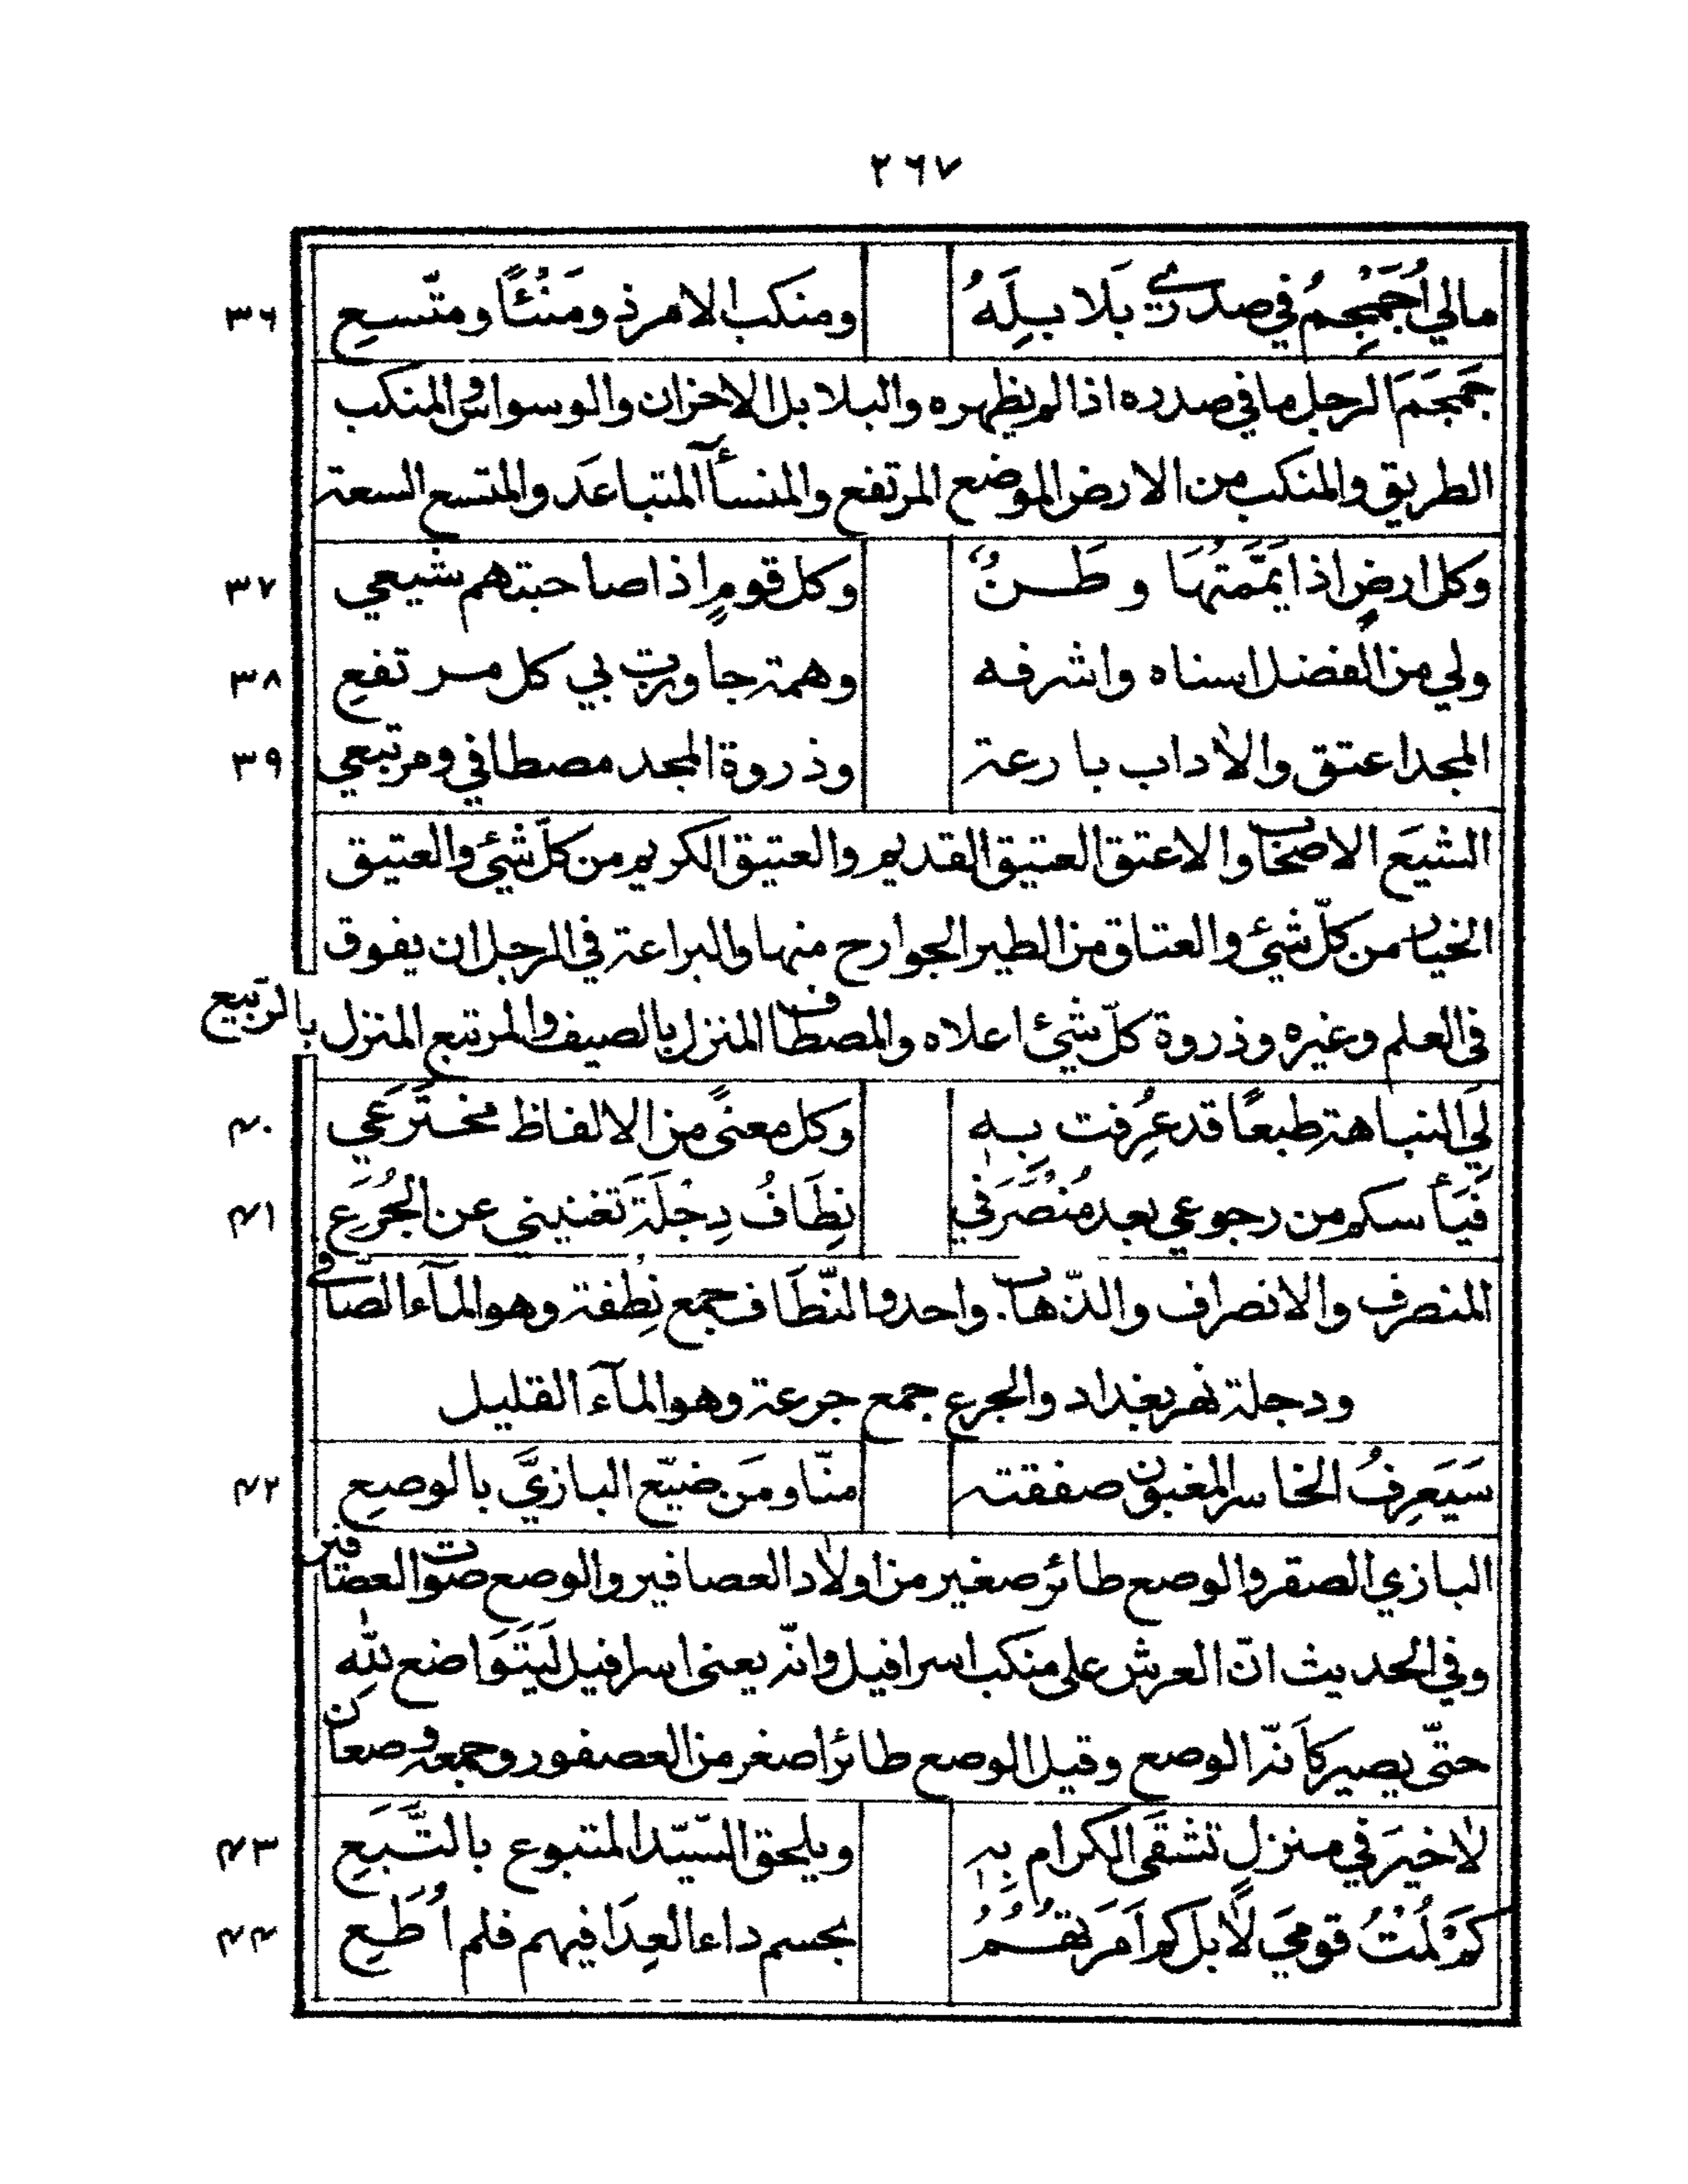 ٢٦٧
مالي أُجَمْجِمُ في صدري بَلَا بِلَهُ ومنكب الارض ذو مَنْئًا ومتّسعِ ٣٦
جَمجَمَ الرجل ما في صدره اذا لم يظهره والبلا بل الاخزان والوسواس والمنكب
الطريق والمنكب من الارض الموضع المرتفع والمنسأ المتباعَد والمتسع السعة
وكل ارضٍ اذا يَمَّمتُهَا وطَــنٌ وكل قومٍ اذا صاحبتهم شيعي ٣٧
ولي من الفضل اسناه واشرفه وهمة جاورت بي كل مرتفعِ ٣٨
المجد اعتق والاداب بارعة وذروة المجد مصطافي ومرتبعي ٣٩
الشيَع الاصحاب والاعتق العتيق القديم والعتيق الكريم من كلّ شيئ والعتيق
الخيار من كلّ شيئ والعتاق من الطير الجوارح منها والبراعة في الرجل ان يفوق
في العلم وغيره وذروة كلّ شيئ اعلاه والمصطاف المنزل بالصيف والمرتبع المنزل بالرّبيع
لِيَ النباهة طبعًا قد عُرِفت بهِ وكل معنىً من الالفاظ مخترَعي ٤٠
فَيَأسكم من رجوعي بعد مُنْصَرَفي نِطَافُ دِجْلَةَ تغنيني عن الجُرَعِ ٤١
المنصرف والانصراف والذّهاب. واحد والنّطَاف جمع نِطْفة وهو المآء الصّافي
ودجلة نهر بغداد والجرع جمع جرعة وهو المآء القليل
سَيَعرِفُ الخاسر المغبون صفقته منّا ومَن ضيّع البازيَّ بالوصعِ ٤٢
البازي الصقر والوصع طائر صغير من اولاد العصافير والوصع صوت العصافير
وفي الحديث انّ العرش على منكب اسرافيل وانّه يعني اسرافيل لَيَتَوَاضع للّٰه
حتّى يصير كأَنّه الوصع وقيل الوصع طائر اصغر من العصفور وجمعه وصعان
لا خيرَ في منزلٍ تشقَى الكرام بهِ ويلحق السّيّد المتبوع بالتَّبَعِ ٤٣
كَمْ لُمْتُ قوميَ لَا بل كم اَمَرتهُمُ بحسم داء العِدَا فيهم فلم أُطَعِ ٤٤